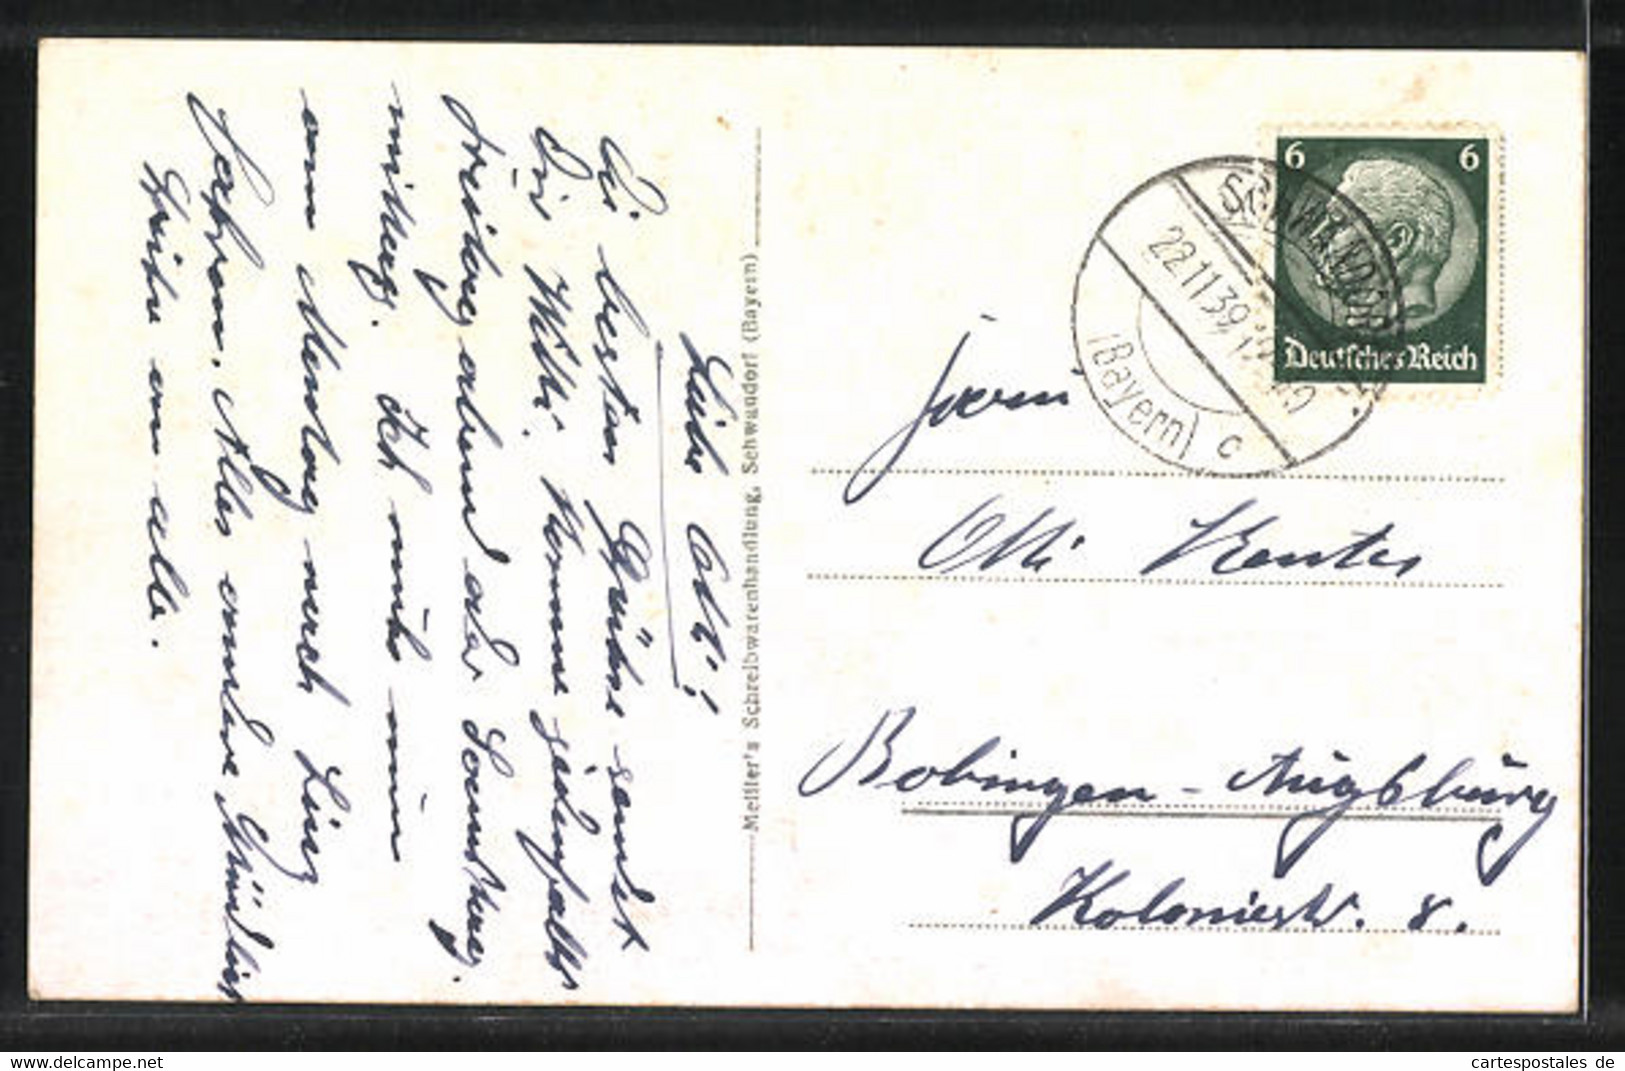 Liebe Otti!
Die besten Grüße sendet
Dir Willi. Komme jedenfalls
Freitag abend oder Samstag
mittag. Ich muß nun
am Montag nach
fahren. Alles andere Mündlich
Grüße an alle.
Mellter's Schreibwarenhandlung, Schwandorf (Bayern)
6 6
Deutsches Reich
SCHWANDORF
22.11.39
(Bayern) c
Otti
Bobingen - Augsburg
Koloniestr. 8.
cartespostales de